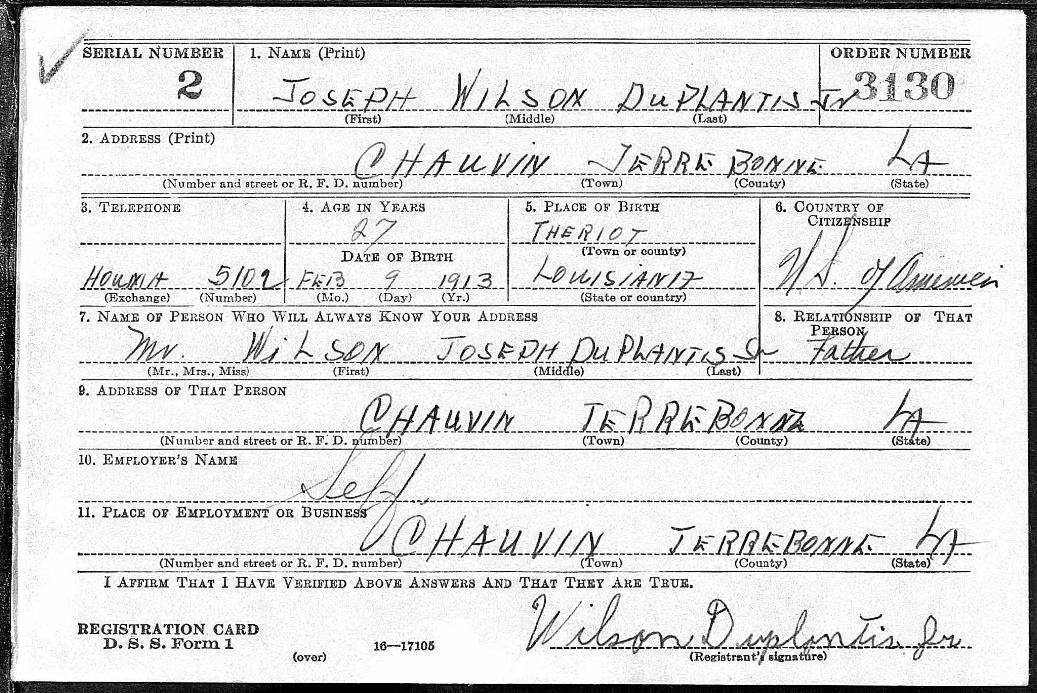 SERIAL NUMBER 1. NAME (Print) ORDER NUMBER
2 JOSEPH WILSON DUPLANTIS Jr 3130
(First) (Middle) (Last)
2. ADDRESS (Print)
CHAUVIN TERREBONNE LA
(Number and street or R. F. D. number) (Town) (County) (State)
3. TELEPHONE 4. AGE IN YEARS 5. PLACE OF BIRTH 6. COUNTRY OF CITIZENSHIP
27 THERIOT
DATE OF BIRTH (Town or county)
HOUMA 5102 FEB 9 1913 LOUISIANA U S. of America
(Exchange) (Number) (Mo.) (Day) (Yr.) (State or country)
7. NAME OF PERSON WHO WILL ALWAYS KNOW YOUR ADDRESS 8. RELATIONSHIP OF THAT PERSON
Mr. WILSON JOSEPH DUPLANTIS Sr Father
(Mr., Mrs., Miss) (First) (Middle) (Last)
9. ADDRESS OF THAT PERSON
CHAUVIN TERREBONNE LA
(Number and street or R. F. D. number) (Town) (County) (State)
10. EMPLOYER'S NAME
Self
11. PLACE OF EMPLOYMENT OR BUSINESS
CHAUVIN TERREBONNE LA
(Number and street or R. F. D. number) (Town) (County) (State)
I AFFIRM THAT I HAVE VERIFIED ABOVE ANSWERS AND THAT THEY ARE TRUE.
REGISTRATION CARD
D. S. S. Form 1 (over) 16—17105 Wilson Duplantis Jr
(Registrant's signature)